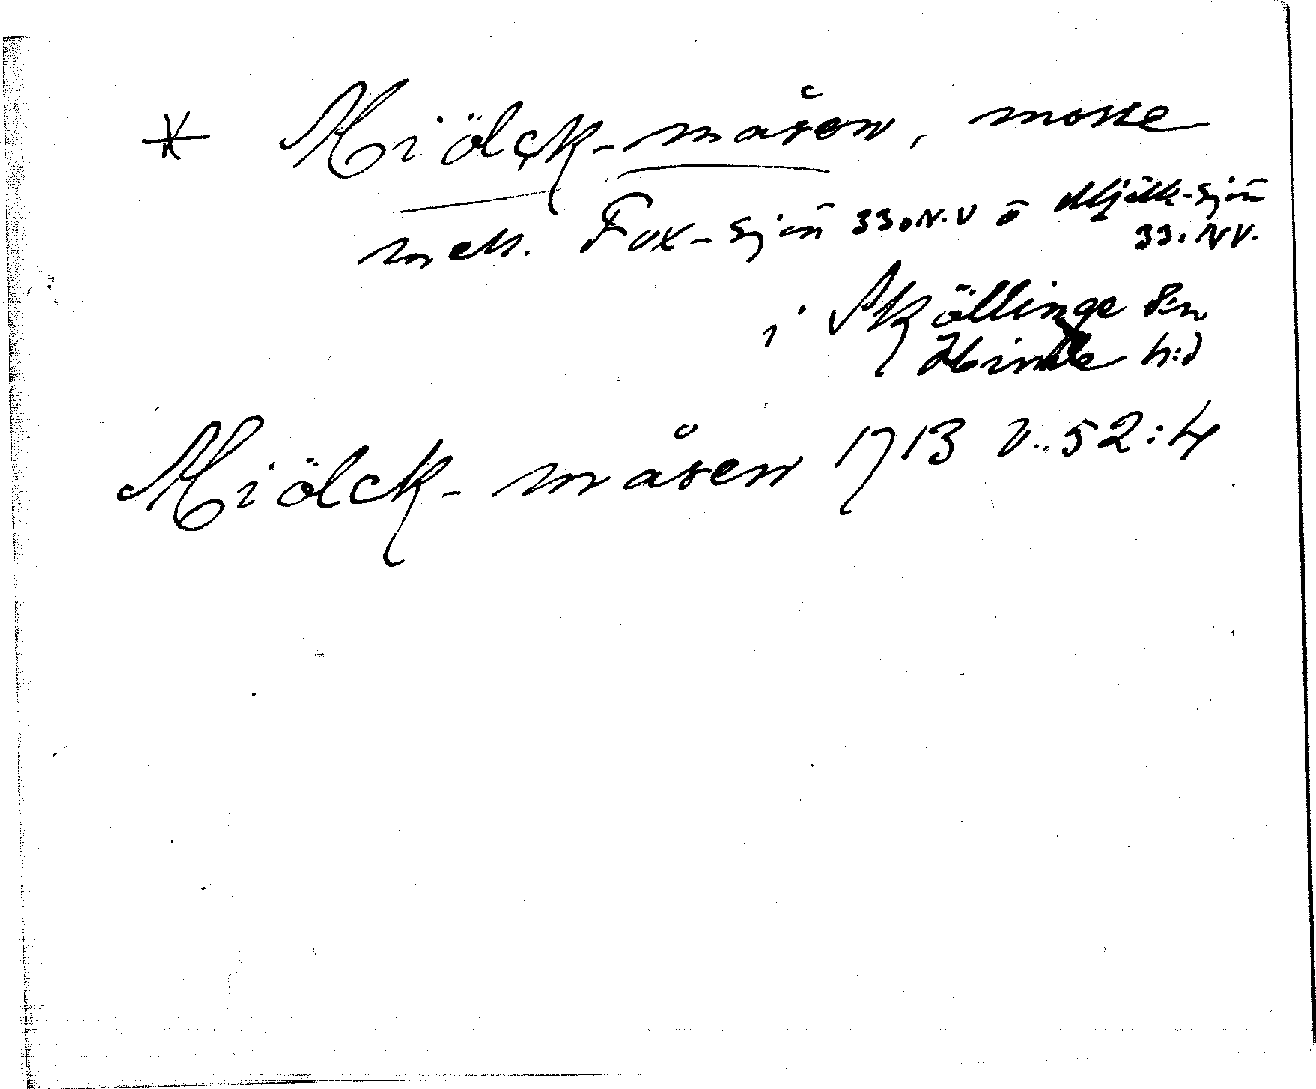 * Miölck-måsen, mosse
mell. Fux-sjön 33.N.V o Mjölk-sjön
33.NV.
i Skällinge s:n
Himle h:d
Miölck-måsen 1713 v. 52:4